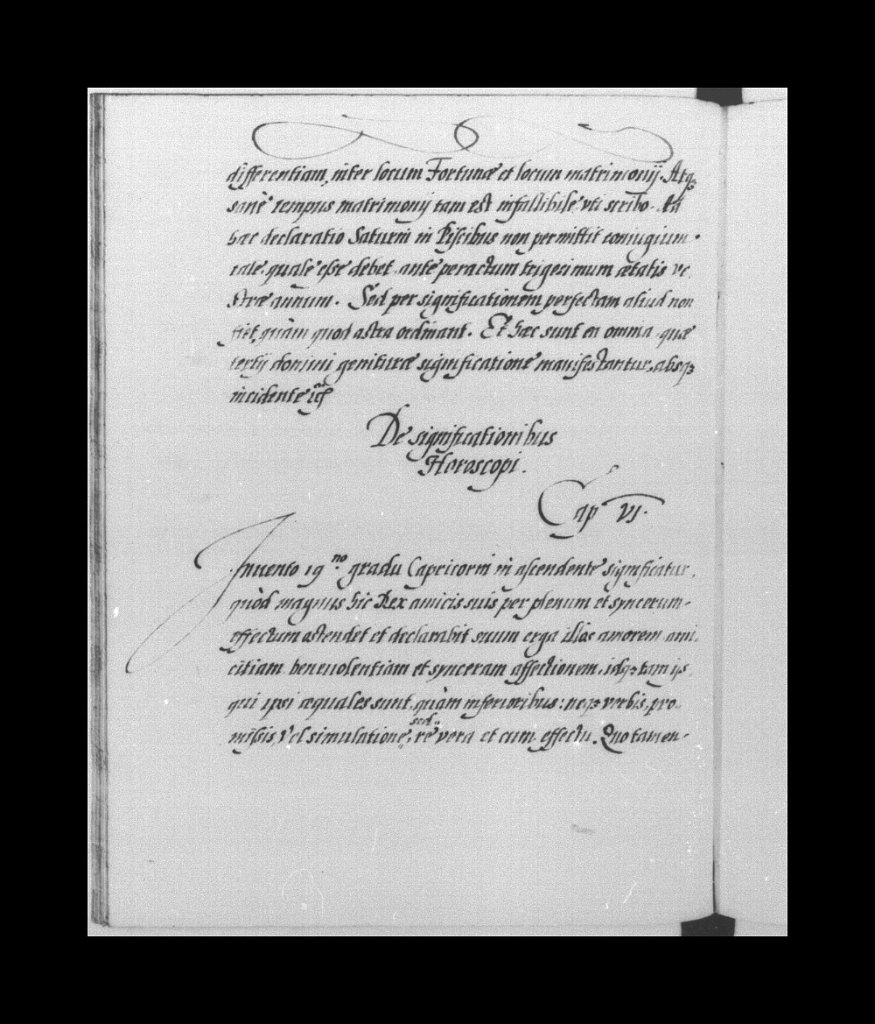 differentiam, inter locum Fortunæ et locum matrimonij. Atq3
sanè tempus matrimonij tam est infallibile vti scribo.
hæc declaratio Saturni in Piscibus non permittit coniugium
tale quale esse debet, ante peractum trigesimum ætatis ve
stræ annum. Sed per significationem perfectam aliud non
fiet, quàm quod astra ordinant. Et hæc sunt ea omnia, quæ
tertij domini genituræ significatione manifestantur, absq3
incidente
De significationibus
Horoscopi.
Cap VI.
Inuento 19no gradu Capricorni in ascendente significatur,
quòd magnus hic Rex amicis suis per plenum et syncerum
effectum ostendet et declarabit suum erga illos amorem ami
citiam beneuolentiam et synceram affectionem, idq3 tam ijs
qui ipsi æquales sunt, quàm inferioribus: neq3 verbis, pro
missis, vel simulatione, sed re vera et cum effectu. Quo tamen